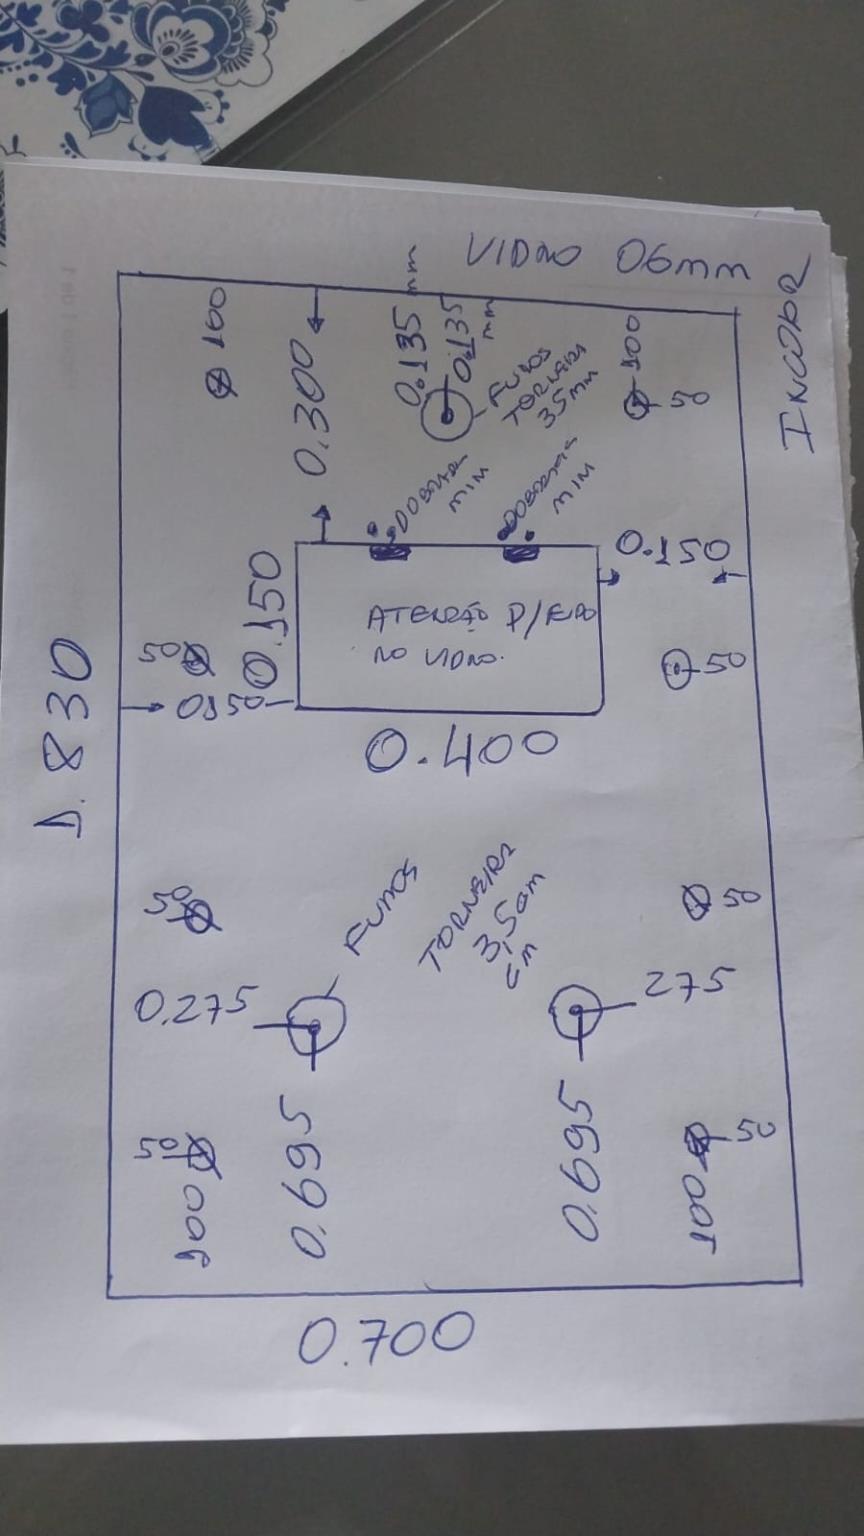 VIDRO 06mm
INCOLOR
100
0.300
0.135 mm
0.135 mm
FUROS
TORNEIRA
35mm
100
50
DOBRADIÇA
MIM
DOBRADIÇA
MIM
0.150
0.150
ATENÇÃO P/ FURO
NO VIDRO.
50
50
0150
1.830
0.400
50
FUROS
TORNEIRA
3,5cm
cm
50
0.275
275
50
50
100
0.695
0.695
100
0.700